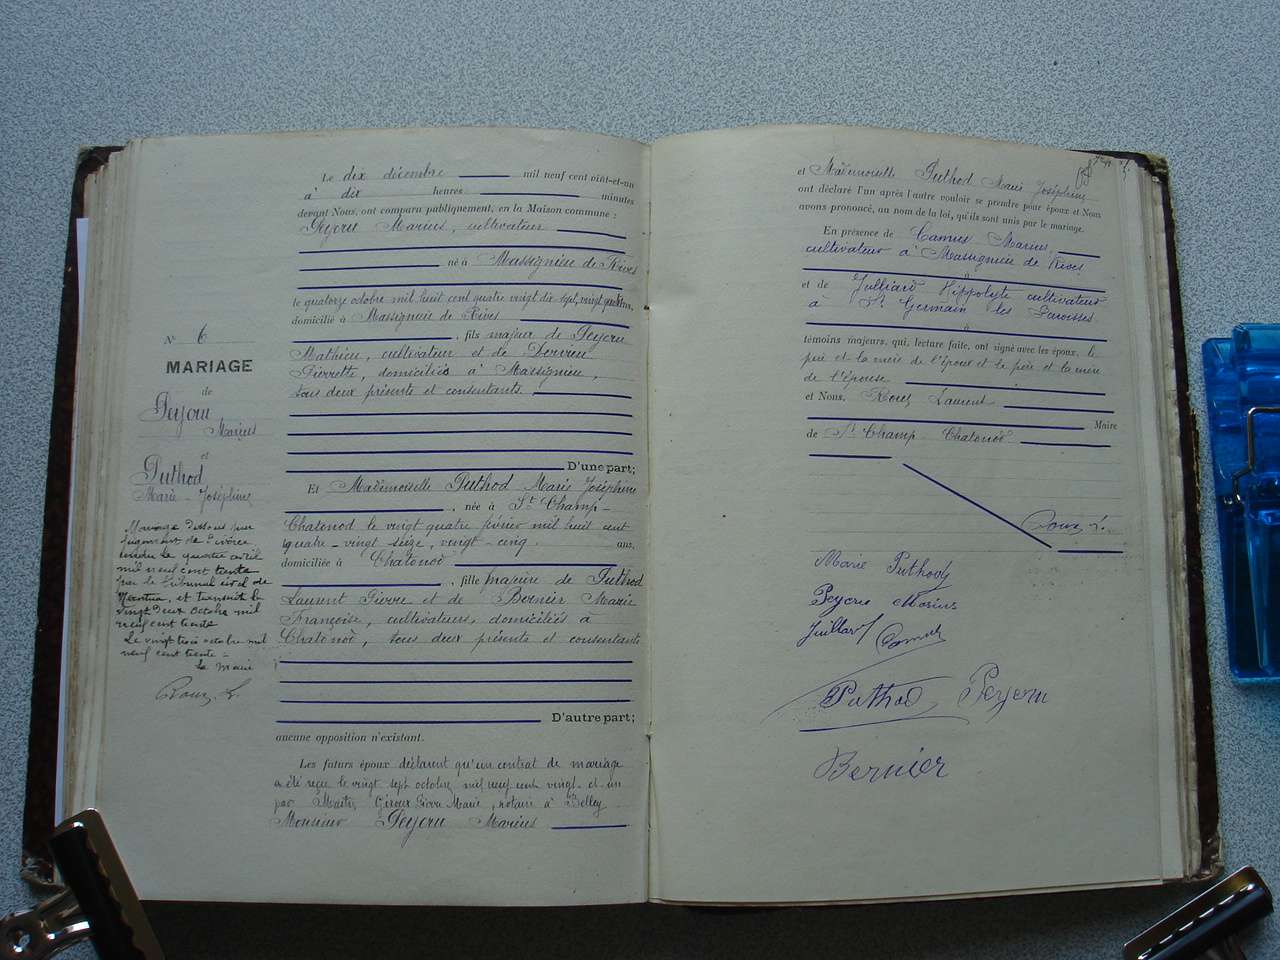 N° 6
MARIAGE
de
Peyeru
Marius
et
Puthod
Marie-Joséphine
Mariage dissous par
jugement de divorce
rendu le quatre avril
mil neuf cent trente
par le tribunal civil de
Nantua, et transcrit le
vingt deux octobre mil
neuf cent trente
Le vingt trois octobre mil
neuf cent trente
Le Maire
Roux L.
Le dix décembre mil neuf cent vint-et-un
à dix heures minutes
devant Nous, ont comparu publiquement, en la Maison commune :
Peyeru Marius, cultivateur
né à Massignieu de Rives
le quatorze octobre mil huit cent quatre vingt dix sept, vingt quatre ans,
domicilié à Massignieu de Rives
, fils majeur de Peyeru
Mathieu, cultivateur et de Dervieu
Pierrette, domiciliés à Massignieu,
tous deux présents et consentants.
D'une part;
Et Mademoiselle Puthod Marie Joséphine
, née à St Champ-
Chatonod le vingt quatre février mil huit cent
quatre-vingt seize, vingt-cinq ans,
domiciliée à Chatonod
, fille majeure de Puthod
Laurent Pierre et de Bernier Marie
Françoise, cultivateurs, domiciliés à
Chatonod, tous deux présents et consentants
D'autre part;
aucune opposition n'existant.
Les futurs époux déclarent qu'un contrat de mariage
a été reçu le vingt sept octobre mil neuf cent vingt et un
par Maître Giroux Pierre Marie, notaire à Belley
Monsieur Peyeru Marius
et Mademoiselle Puthod Marie Joséphine
ont déclaré l'un après l'autre vouloir se prendre pour époux et Nous
avons prononcé, au nom de la loi, qu'ils sont unis par le mariage.
En présence de Camus Marius,
cultivateur à Massignieu de Rives
et de Juilliard Hippolyte cultivateur
à St Germain les Paroisses
témoins majeurs, qui, lecture faite, ont signé avec les époux, le
père et la mère de l'époux et le père et la mère
de l'épouse
et Nous, Roux Laurent
Maire
de St Champ-Chatonod
Roux L.
Marie Puthod
Peyeru Marius
Juillard Camus
Puthod Peyeru
Bernier